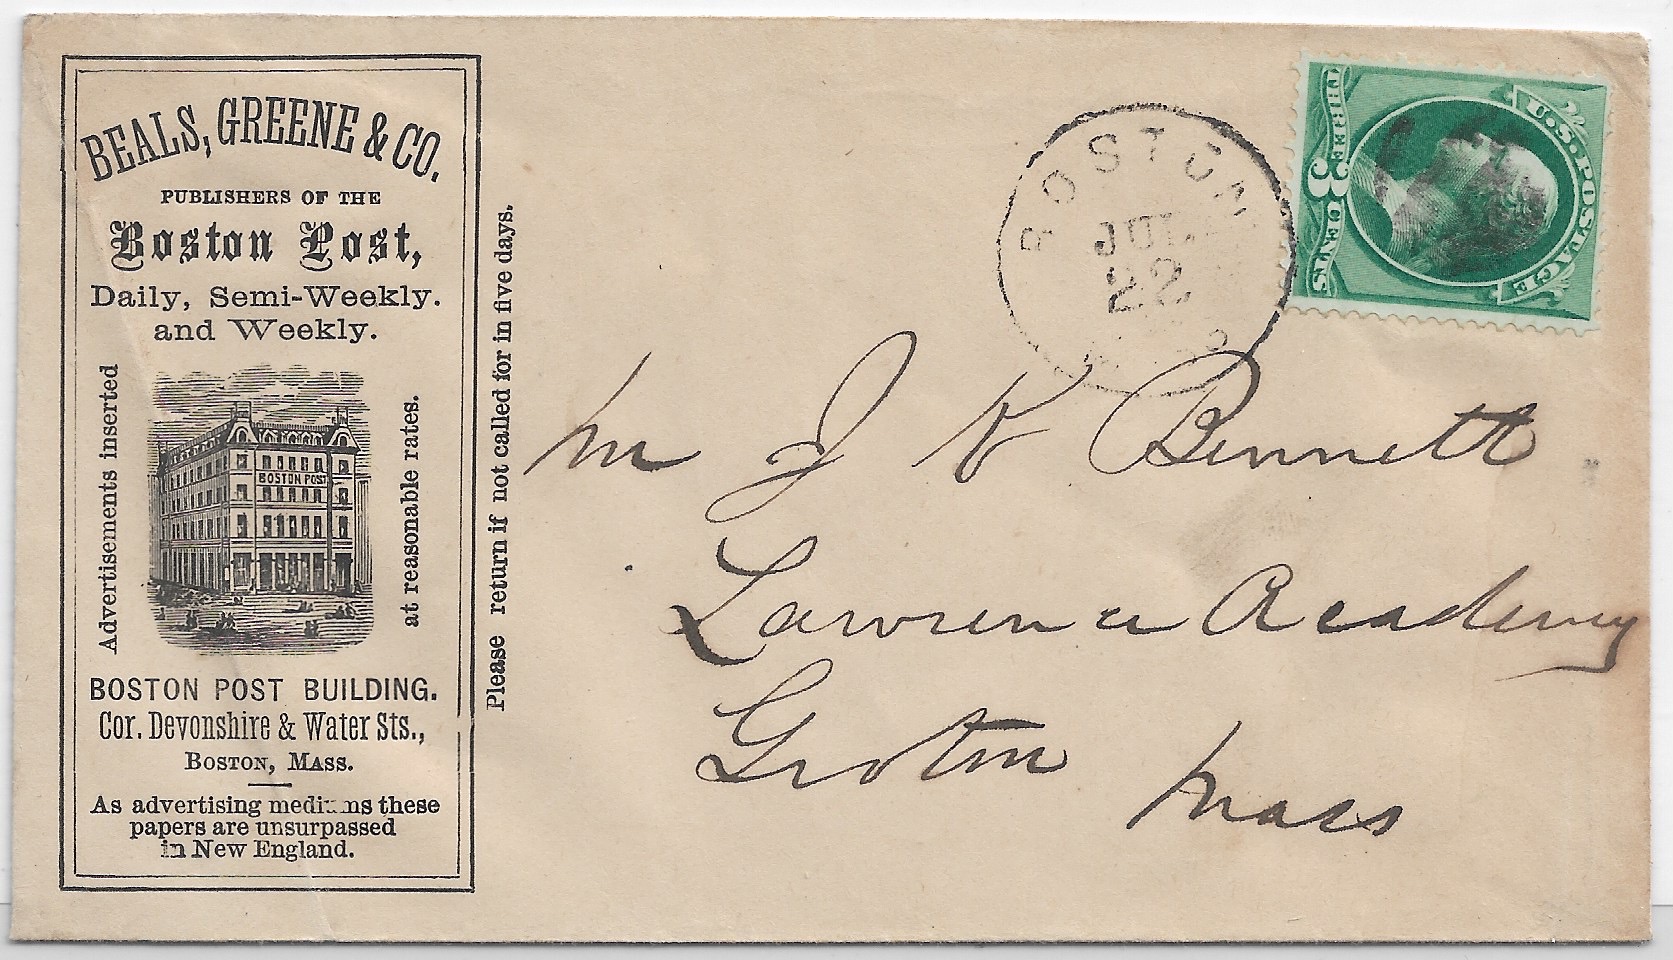 BEALS, GREENE & CO.
PUBLISHERS OF THE
Boston Post,
Daily, Semi-Weekly.
and Weekly.
Advertisements inserted
at reasonable rates.
BOSTON POST
BOSTON POST BUILDING.
Cor. Devonshire & Water Sts.,
BOSTON, MASS.
As advertising mediums these
papers are unsurpassed
in New England.
Please return if not called for in five days.
BOSTON
JUL
22
U.S. POSTAGE
THREE 3 CENTS
Mr J K Bennett
Lawrence Academy
Groton
Mass